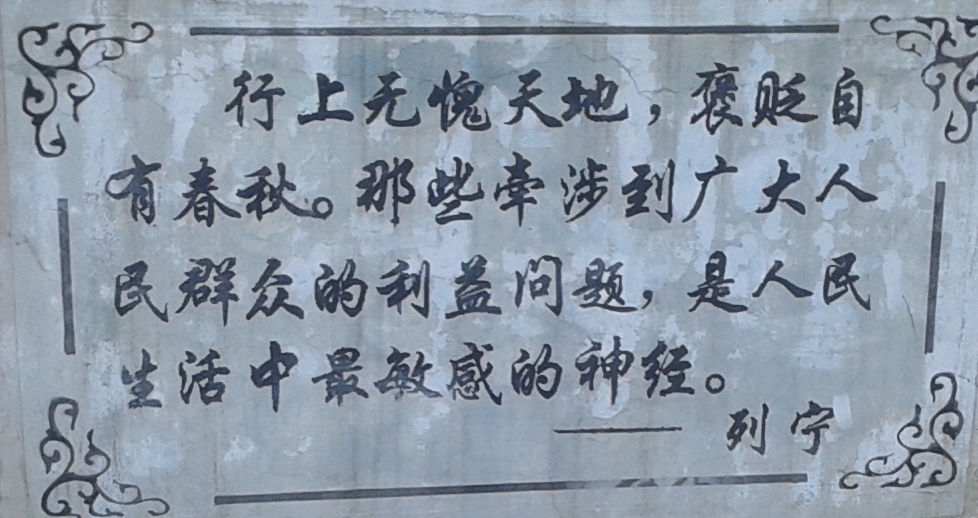 行上无愧天地，褒贬自
有春秋。那些牵涉到广大人
民群众的利益问题，是人民
生活中最敏感的神经。
——列宁